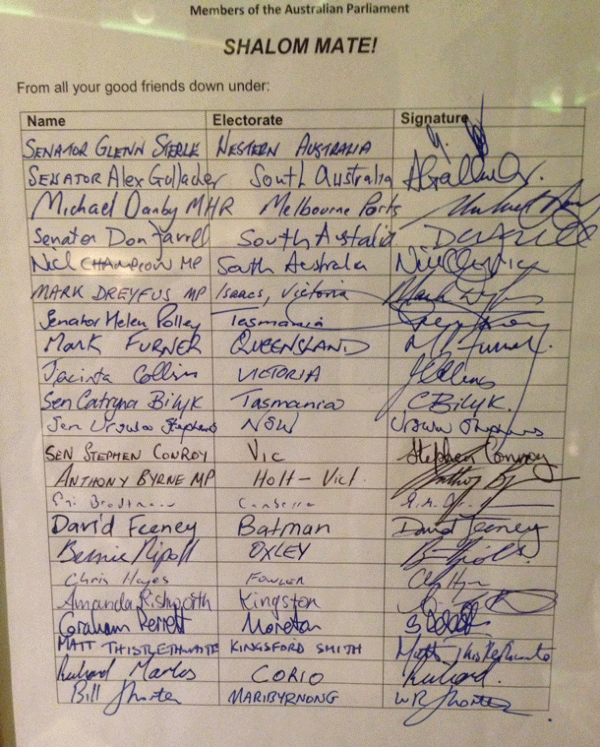 Members of the Australian Parliament
SHALOM MATE!
From all your good friends down under:
Name Electorate Signature
SENATOR GLENN STERLE WESTERN AUSTRALIA
SENATOR Alex Gallacher South Australia
Michael Danby MHR Melbourne Ports
Senator Don Farrell South Australia
Nick CHAMPION MP South Australia
MARK DREYFUS MP Isaacs, Victoria
Senator Helen Polley Tasmania
MARK FURNER QUEENSLAND
Jacinta Collins VICTORIA
Sen Catryna Bilyk Tasmania CBilyk.
Sen Ursula Stephens NSW Ursula Stephens
SEN STEPHEN CONROY VIC Stephen Conroy
ANTHONY BYRNE MP HOLT - Vict.
Canberra
David Feeney Batman David Feeney
Bernie Ripoll OXLEY
Chris Hayes FOWLER
Amanda Rishworth Kingston
Graham Perrett Moreton
MATT THISTLETHWAITE KINGSFORD SMITH Matt Thistlethwaite
Richard Marles CORIO Richard
Bill Shorten MARIBYRNONG WR Shorten